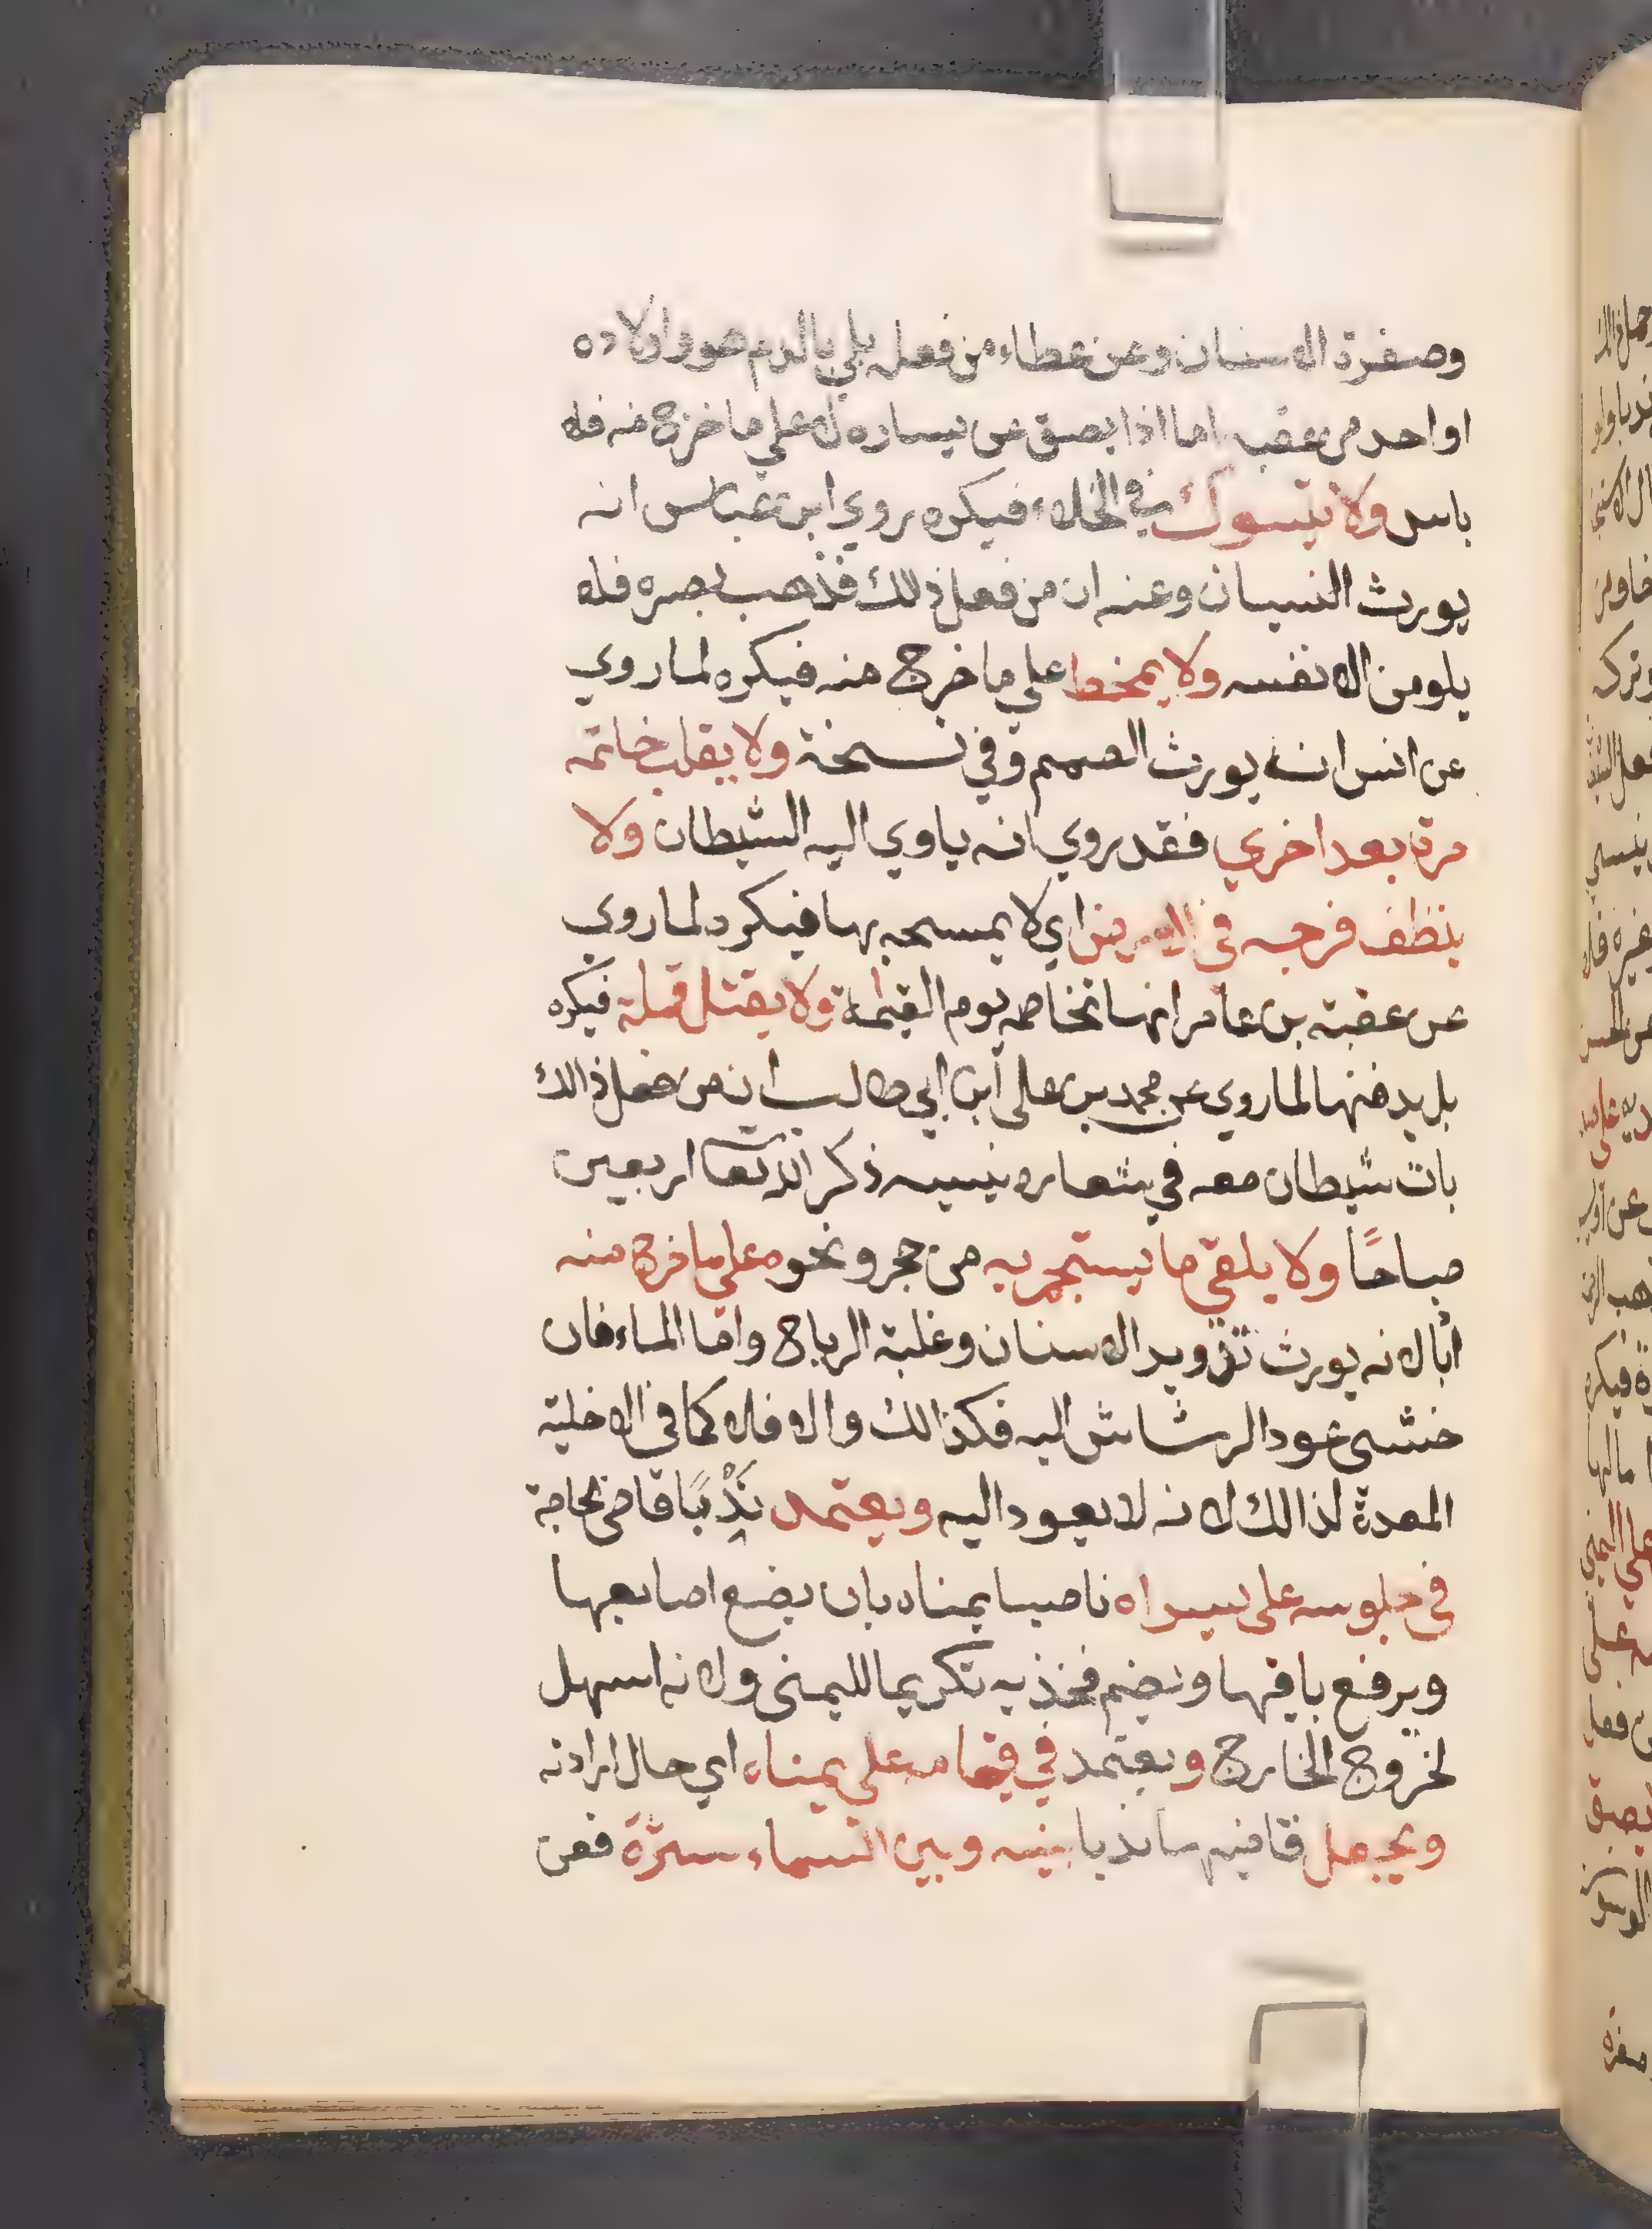 وصفرة الاسنان وعن عطاء من فعله بلي بالدم هو واولاده
او احد من عقبه اما اذا بصق عن يساره لا علي ما خرج منه فلا
باس ولا يتسوك في الخلاء فيكره روي ابن عباس انه
يورث النسيان وعنه ان من فعل ذلك فذهب بصره فلا
يلومن الا نفسه ولا يمخط علي ما خرج منه فيكره لما روي
عن انس انه يورث الصمم وفي نسخة ولا يقلب خاتمه
مرة بعد اخري فقد روي انه ياوي اليه الشيطان ولا
ينظف فرجه في اي لا يمسحه بها فيكره لما روي
عن عقبة بن عامر انها تخاصمه يوم القيمة ولا يقتل قملة فيكره
بل يدفنها لما روي عن محمد بن علي ابن ابي طالب انه من فعل ذالك
بات شيطان معه في شعاره ينسيه ذكر الله تعا اربعين
صباحًا ولا يلقي ما يستجمر به من حجر ونحوه علي ما خرج منه
لانه يورث الاسنان وغلبة الرياح واما الماء فان
خشي عود الرشاش اليه فكذالك والا فلا كما في الاخلية
المعدة لذالك لانه لا يعود اليه ويعتمد نَدْبًا قاضي حاجة
في جلوسه على يسراه ناصبا يمناه بان يضع اصابعها
ويرفع باقيها ويضم فخذيه تكريما لليمنى ولانه اسهل
لخروج الخارج ويعتمد في قيامه علي يمناه اي حال ارادته
ويجعل قاضيها ندبا بينه وبين السماء سترة فعن